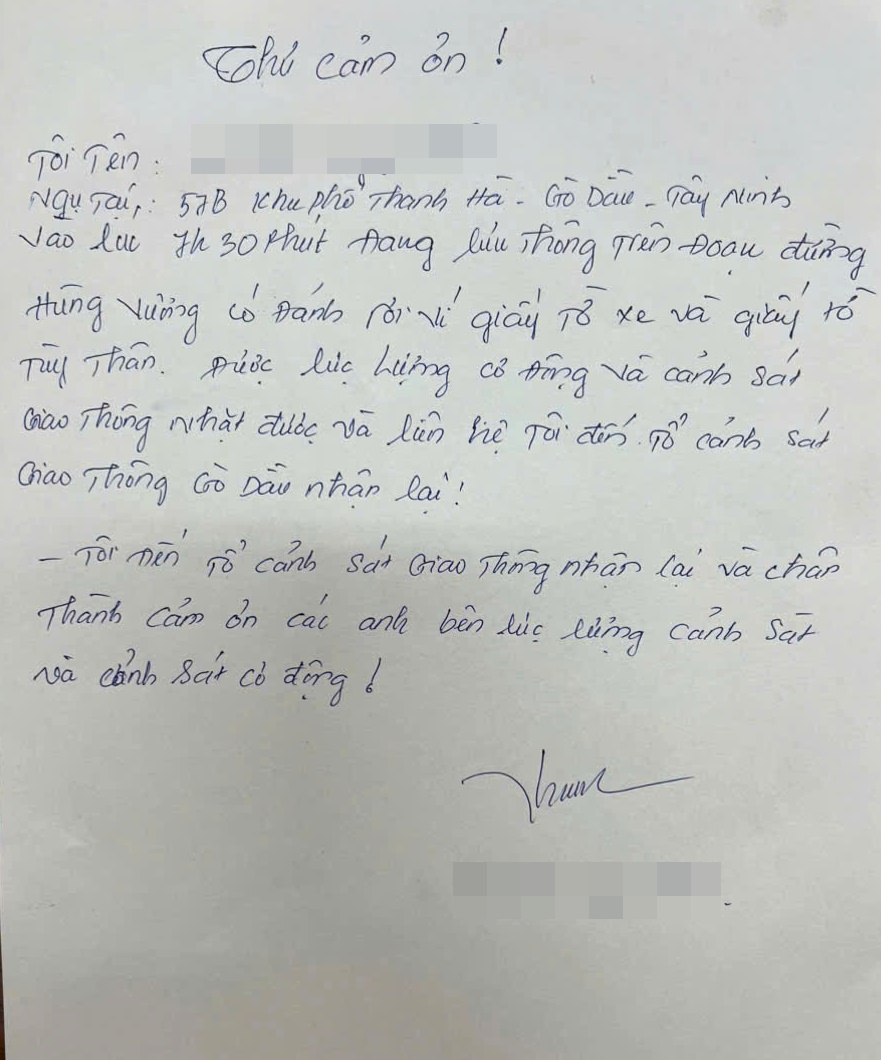 Thư cảm ơn!
Tôi Tên:
Ngụ Tại,: 57B Khu phố Thanh Hà - Gò Dầu - Tây Ninh
Vào lúc 7h 30 Phút Đang lưu Thông Trên Đoạn đường
Hùng Vương có Đánh rơi ví giấy Tờ xe và giấy tờ
Tùy Thân. Được lực lượng cơ Động và cảnh sát
Giao Thông nhặt được và liên hệ Tôi đến. Tổ cảnh sát
Giao Thông Gò Dầu nhận lại!
- Tôi Đến Tổ cảnh sát Giao Thông nhận lại và chân
Thành cảm ơn các anh bên lực lượng cảnh sát
và cảnh sát cơ động!